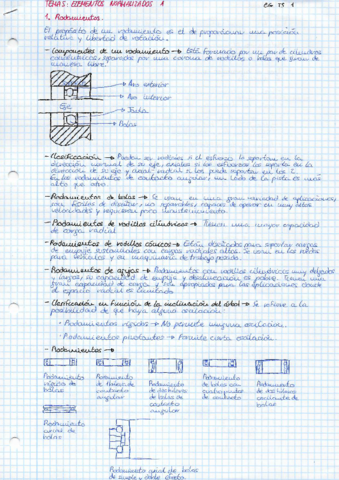 TEMA 5: ELEMENTOS MECANIZADOS 1
1. Rodamientos.
El propósito de un rodamiento es el de proporcionar una posición
relativa y libertad de rotación.
- Componentes de un rodamiento → Está formado por un par de cilindros
concéntricos separados por una corona de rodillos o bolas que giran de
manera libre.
Aro exterior
Aro interior
Eje
Jaula
Bolas
- Clasificación → Pueden ser radiales si el esfuerzo lo soportan en la
dirección normal de su eje, axiales si los esfuerzos los soporta en la
dirección de su eje y
contacto angular un lado de la pista es más
alta que otro.
- Rodamientos de bolas → Se usan en una gran variedad de aplicaciones,
son fáciles de diseñar, no separables, capaces de operar en muy altas
velocidades y requieren poco mantenimiento.
- Rodamientos de rodillos cilíndricos → Tienen una mayor capacidad
de carga radial.
- Rodamientos de rodillos cónicos → Están diseñados para soportar cargas
de empuje
para vehículos y en maquinaria de trabajo pesado.
- Rodamientos de agujas → Rodamientos con rodillos cilíndricos muy delgados
y largos, su capacidad de empuje y desalineación es pobre. Tienen una
gran capacidad de carga y son apropiados para las aplicaciones donde
el espacio radial es limitado.
- Clasificación en función de la inclinación del árbol → Se refiere a la
posibilidad de que haya alguna oscilación.
· Rodamientos rígidos → No permite ninguna oscilación.
· Rodamientos pivotantes → Permite cierta oscilación.
- Rodamientos →
Rodamiento
rígido de
bolas
Rodamiento
de
contacto
angular
Rodamiento
de dos hileras
de bolas de
contacto
angular
Rodamiento
de bolas con
de contacto
Rodamiento
de dos hileras
de
bolas
Rodamiento
axial de
bolas
Rodamiento axial de bolas
de simple y doble efecto.